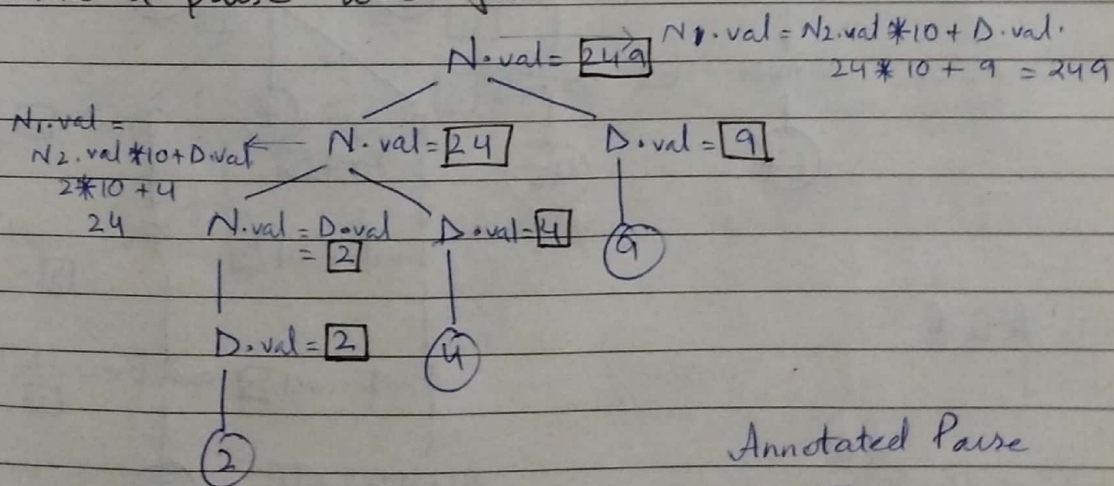 N.val = 249 N1.val = N2.val * 10 + D.val.
24 * 10 + 9 = 249
N1.val =
N2.val * 10 + D.val
2 * 10 + 4
24
N.val = 24
D.val = 9
N.val = D.val
= 2
D.val = 4
9
D.val = 2
4
2
Annotated Parse